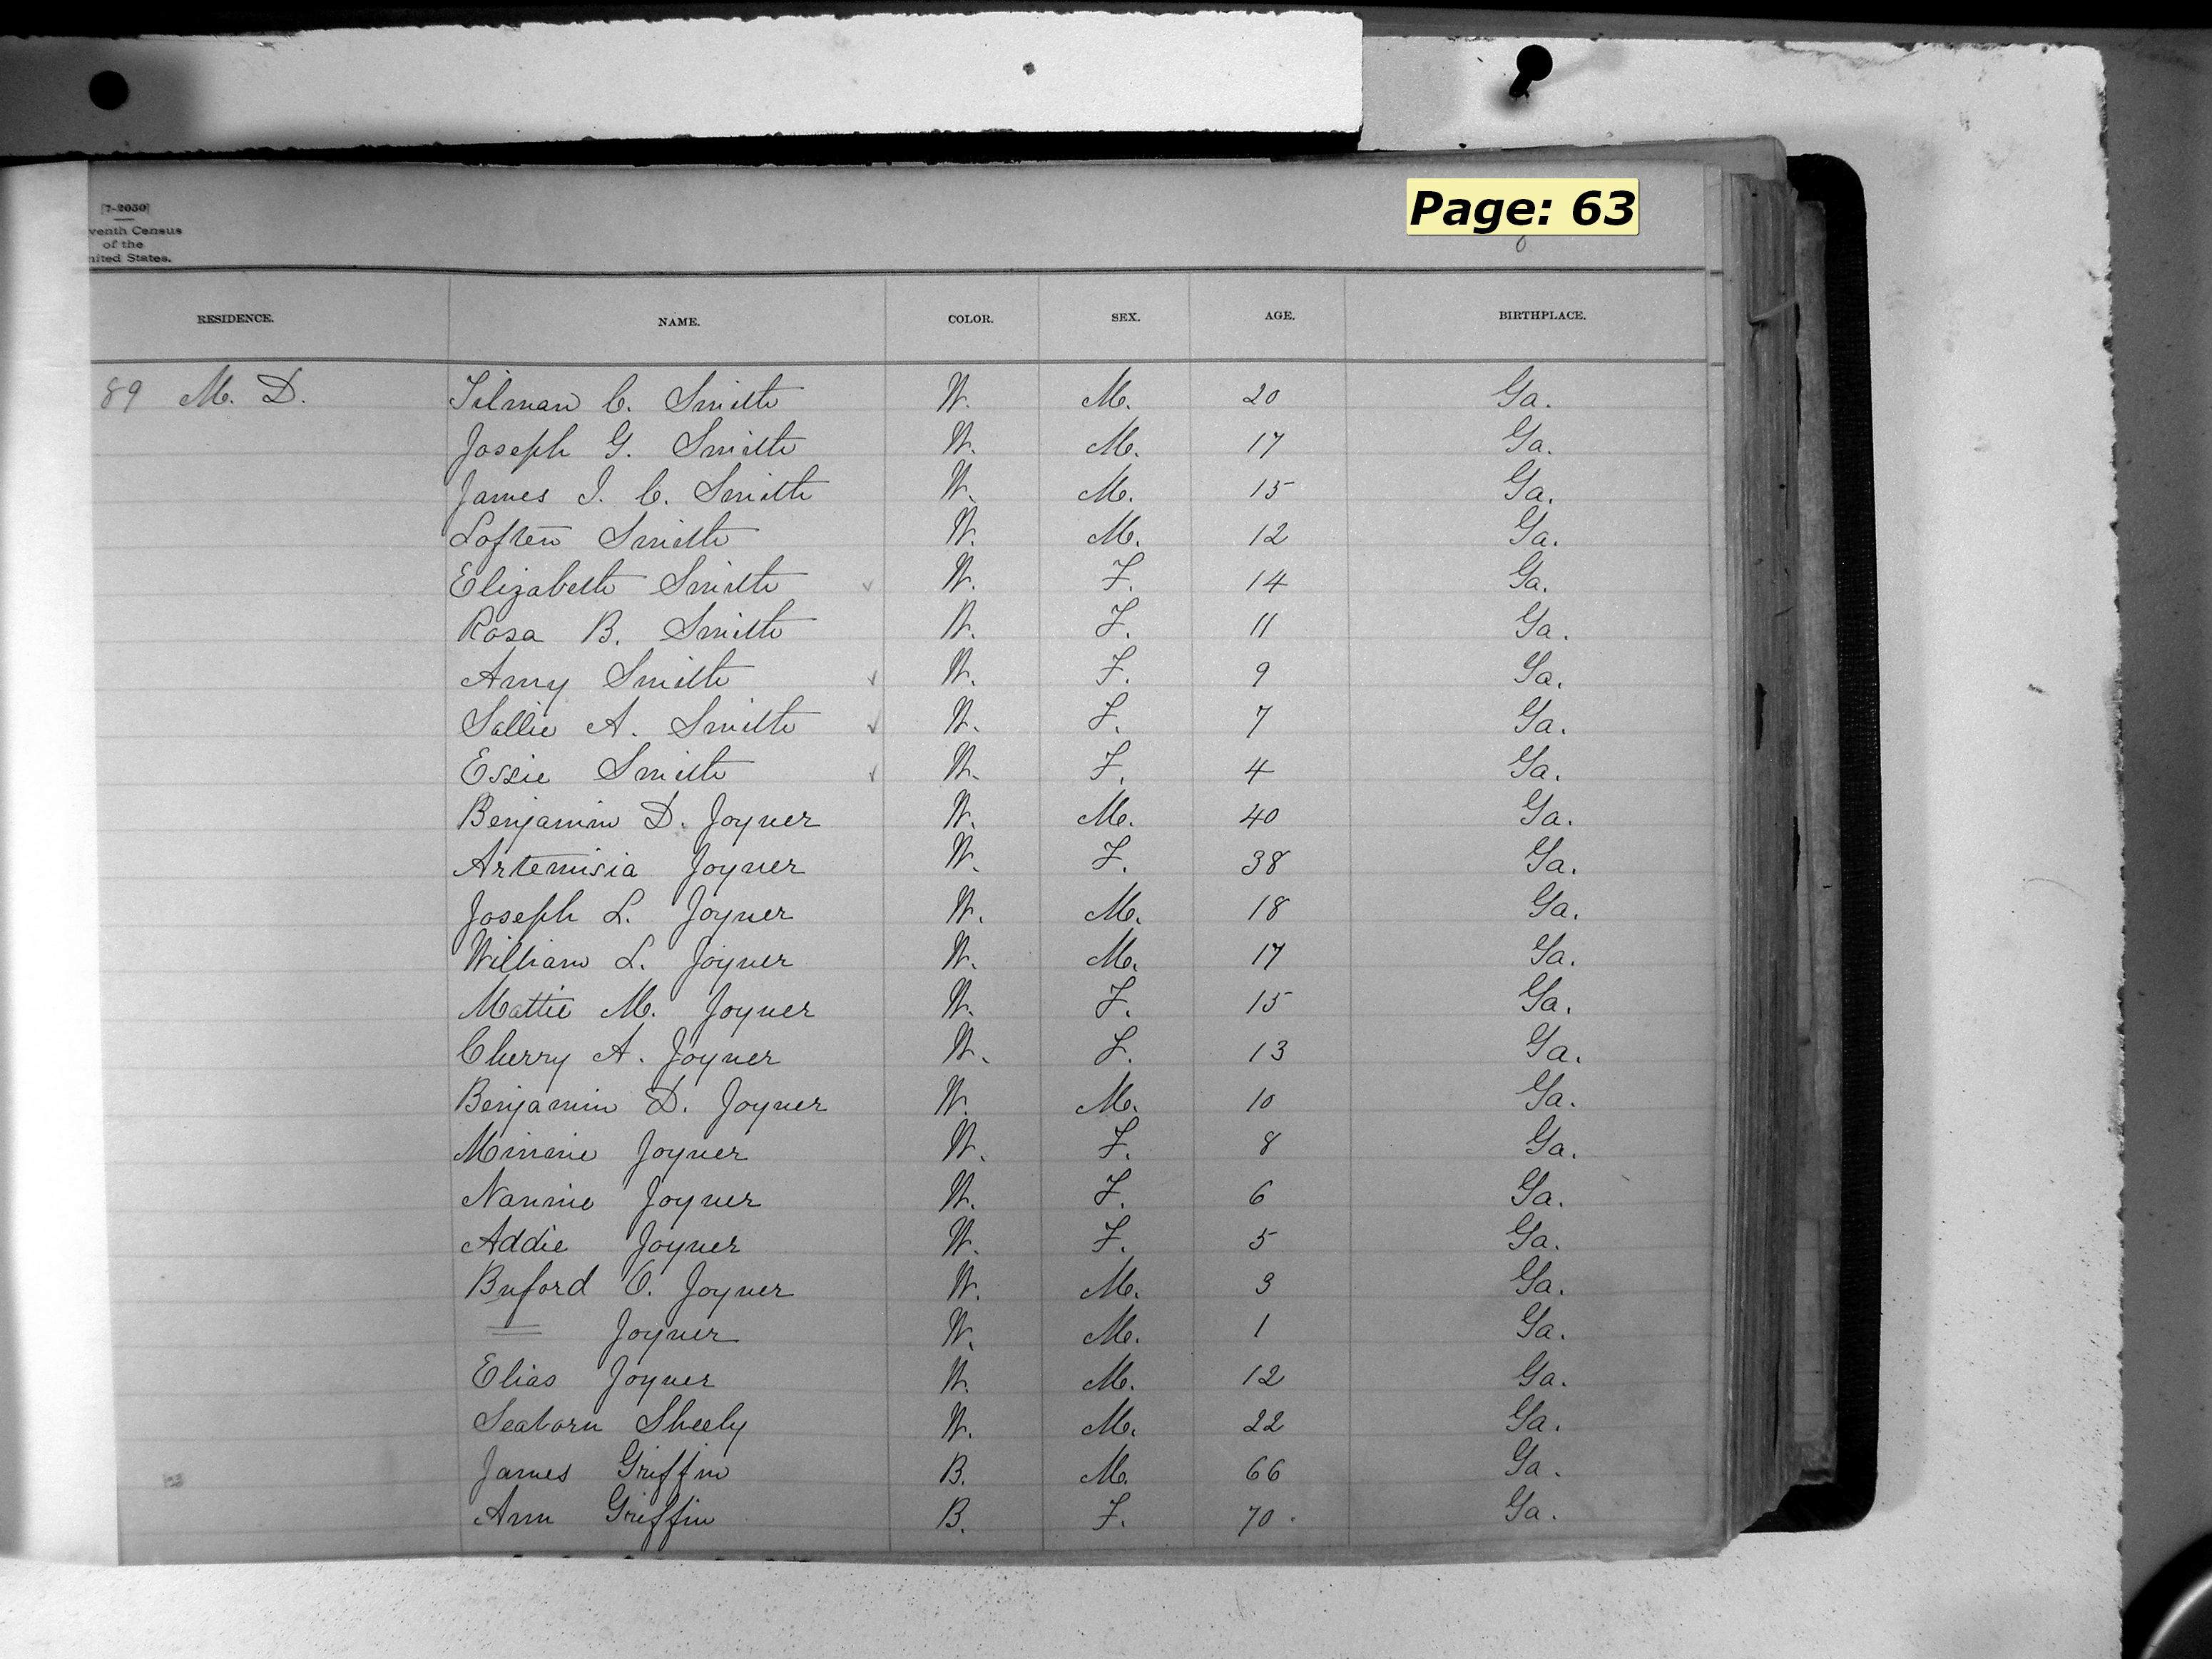 Page: 63
[7-2050]
venth Census
of the
nited States.
RESIDENCE. NAME. COLOR. SEX. AGE. BIRTHPLACE.
89 M. D. Tilman C. Smith W. M. 20 Ga.
Joseph G. Smith W. M. 17 Ga.
James I. C. Smith W. M. 15 Ga.
Loften Smith W. M. 12 Ga.
Elizabeth Smith W. F. 14 Ga.
Rosa B. Smith W. F. 11 Ga.
Amy Smith W. F. 9 Ga.
Sallie A. Smith W. F. 7 Ga.
Essie Smith W. F. 4 Ga.
Benjamin D. Joyner W. M. 40 Ga.
Artemisia Joyner W. F. 38 Ga.
Joseph L. Joyner W. M. 18 Ga.
William L. Joyner W. M. 17 Ga.
Mattie M. Joyner W. F. 15 Ga.
Cherry A. Joyner W. F. 13 Ga.
Benjamin D. Joyner W. M. 10 Ga.
Minnie Joyner W. F. 8 Ga.
Nannie Joyner W. F. 6 Ga.
Addie Joyner W. F. 5 Ga.
Buford O. Joyner W. M. 3 Ga.
Joyner W. M. 1 Ga.
Elias Joyner W. M. 12 Ga.
Seaborn Sheely W. M. 22 Ga.
James Griffin B. M. 66 Ga.
Ann Griffin B. F. 70. Ga.